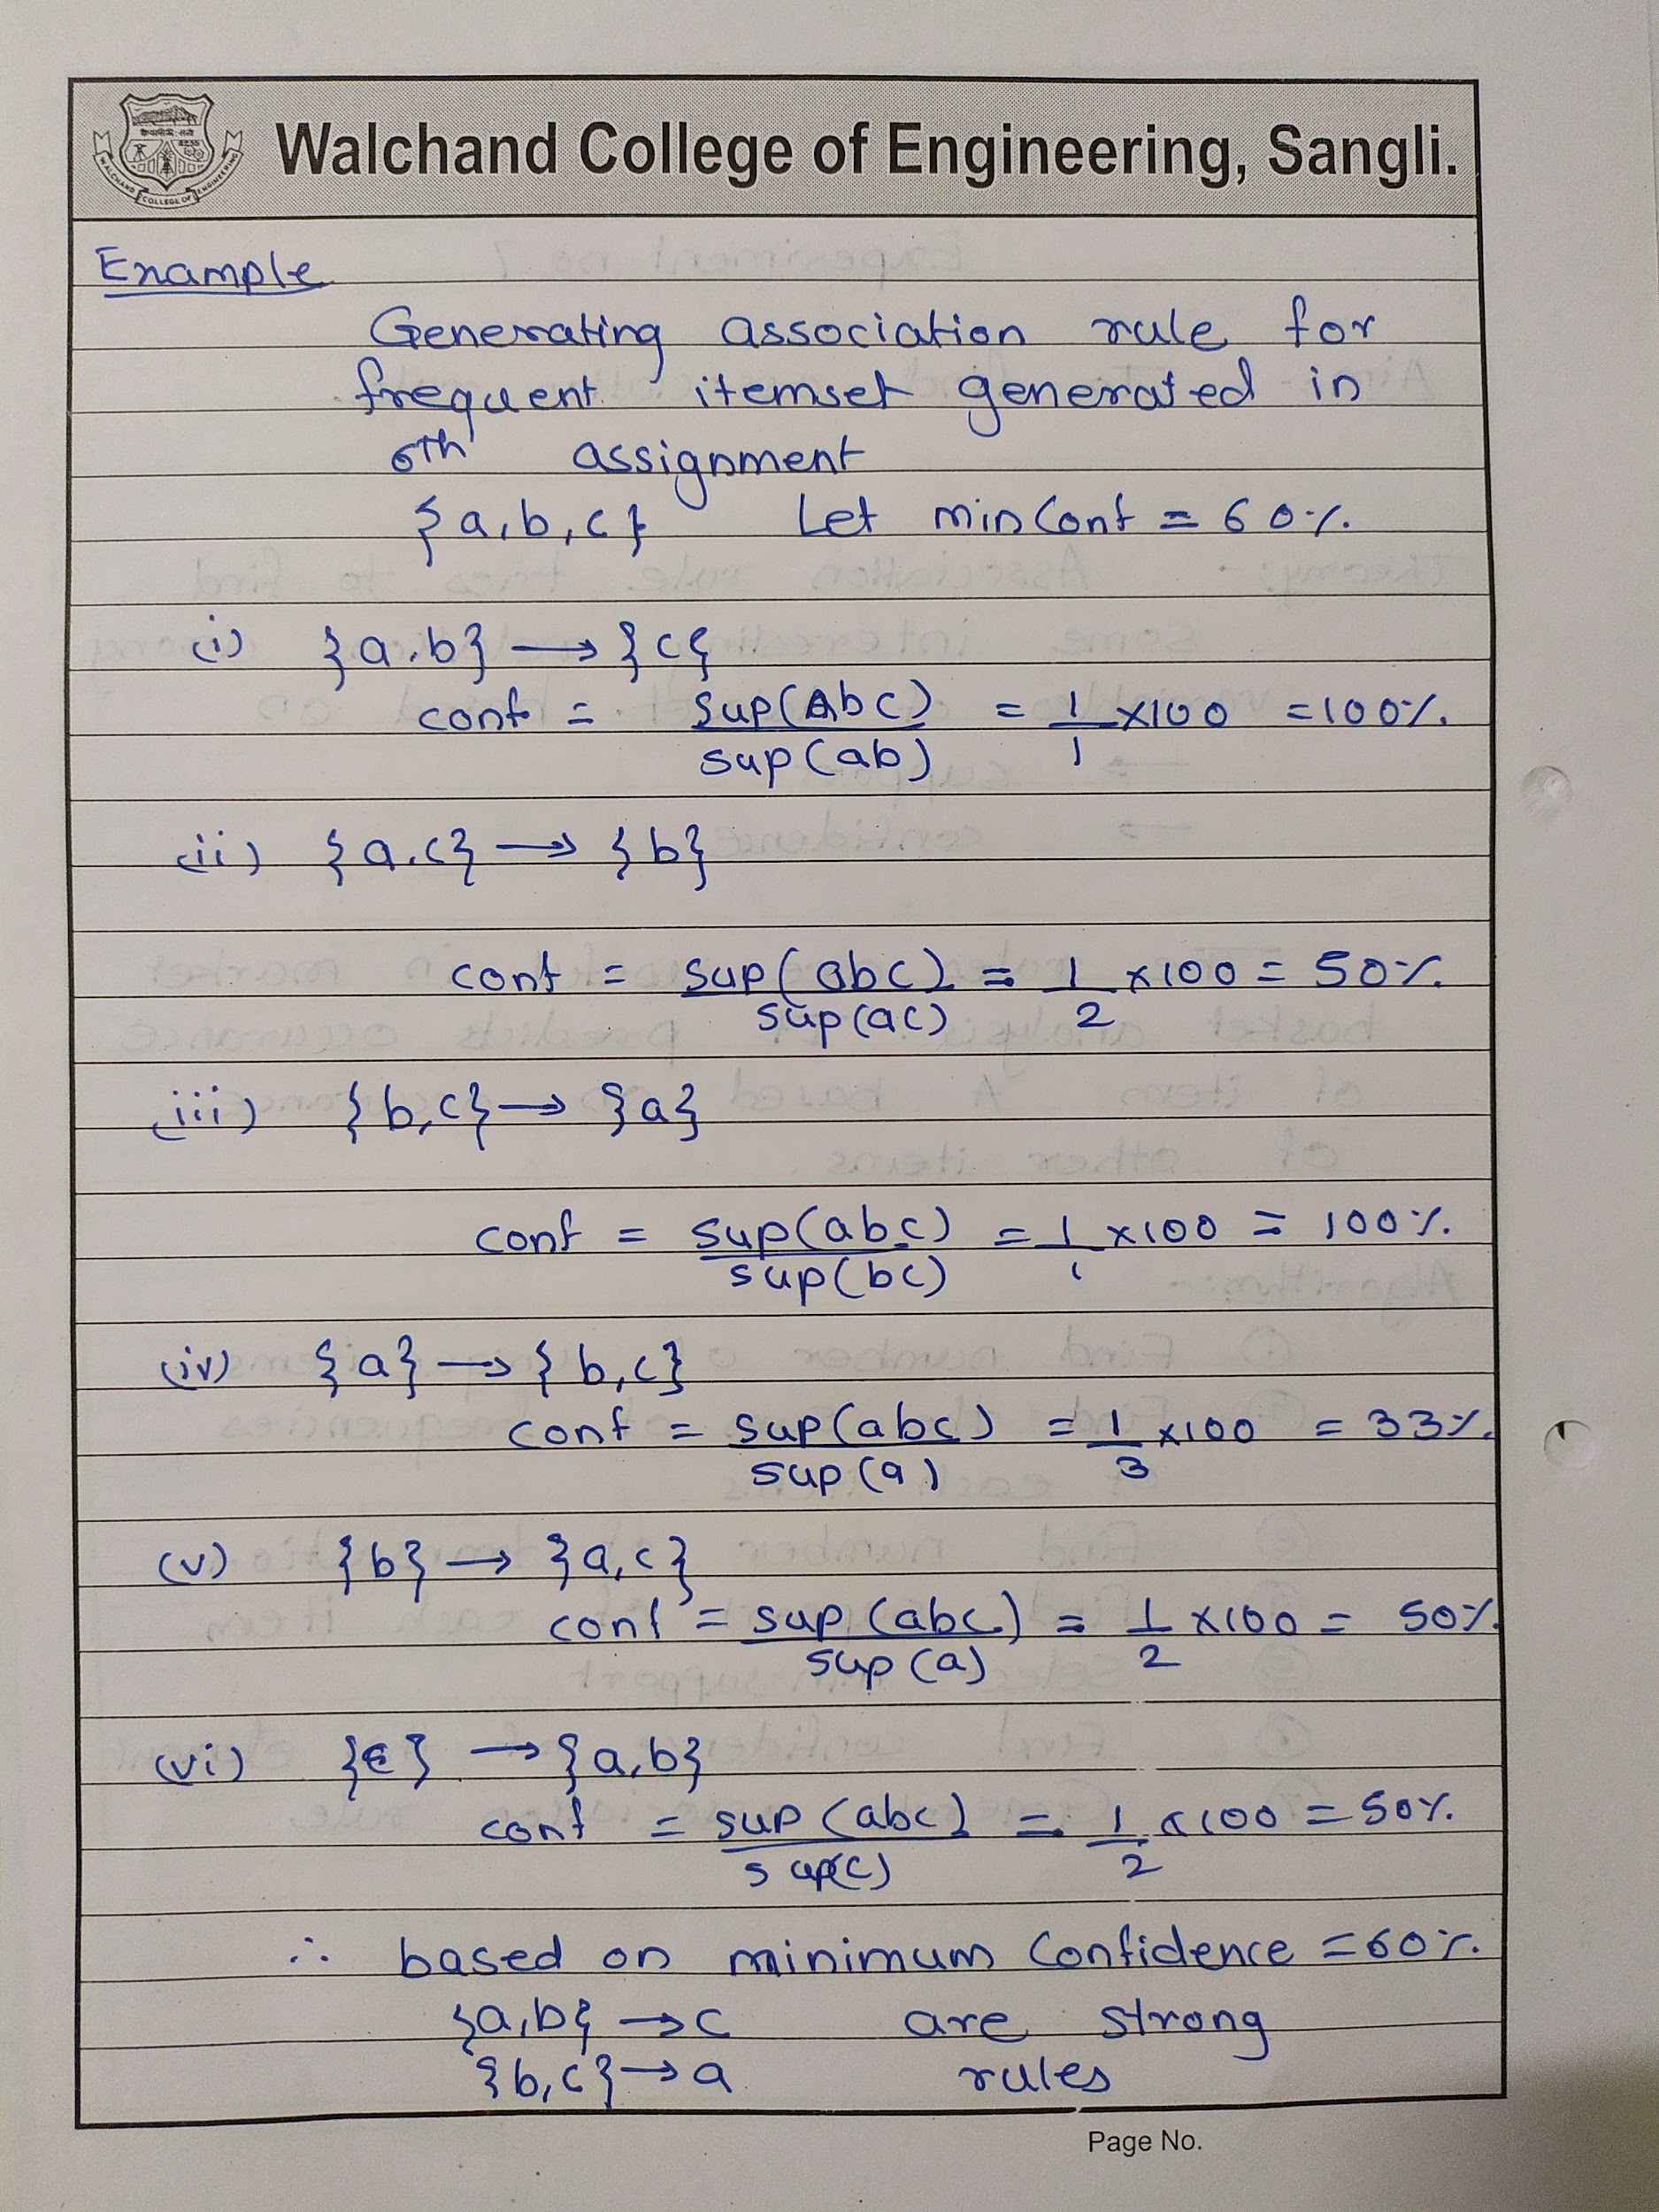 Walchand College of Engineering, Sangli.
WALCHAND COLLEGE OF ENGINEERING
Example
Generating association rule for
frequent itemset generated in
6th assignment
{a,b,c} Let minConf = 60%.
(i) {a,b} → {c}
conf = sup(Abc) / sup(ab) = 1/1 x100 = 100%.
(ii) {a,c} → {b}
conf = sup(abc) / sup(ac) = 1/2 x100 = 50%.
(iii) {b,c} → {a}
conf = sup(abc) / sup(bc) = 1/1 x100 = 100%.
(iv) {a} → {b,c}
conf = sup(abc) / sup(a) = 1/3 x100 = 33%.
(v) {b} → {a,c}
conf = sup(abc) / sup(a) = 1/2 x100 = 50%.
(vi) {c} → {a,b}
conf = sup(abc) / sup(c) = 1/2 x100 = 50%.
∴ based on minimum Confidence = 60%.
{a,b} → c are strong
{b,c} → a rules
Page No.